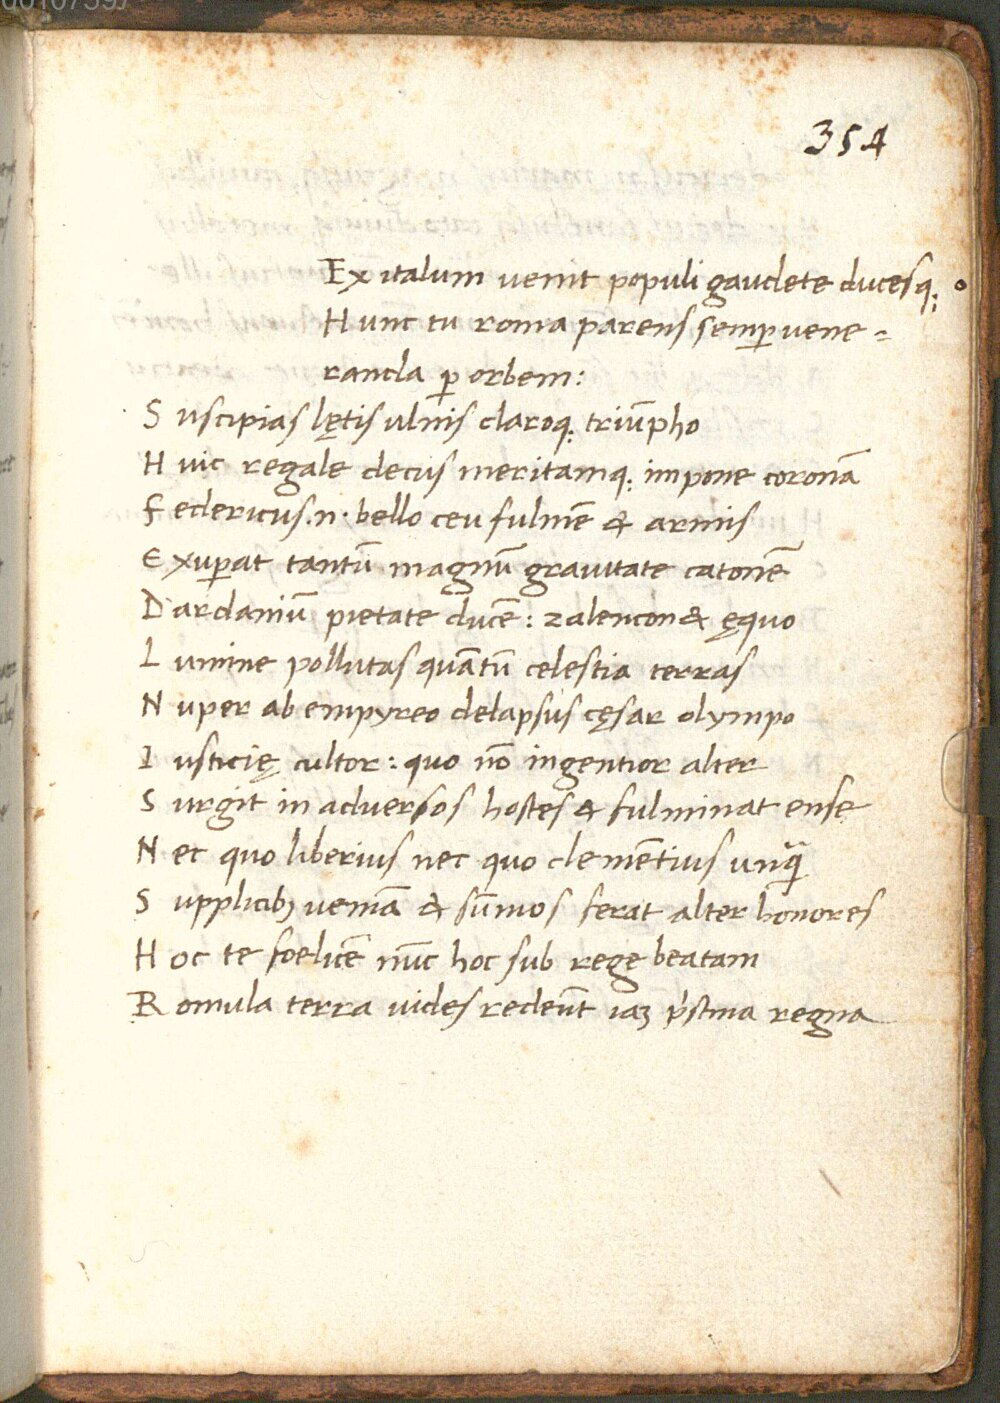 354
Ex italum uenit populi gaudete ducesq;
Hunc tu roma parens semp̱ uene=
randa ꝑ orbem:
Suscipias lętis ulnis claroq; triūpho
Huic regale decus meritamq; impone coronā
Federicus .n. bello ceu fulmē & armis
Exuꝑat tantū magnū grauitate catonē
Dardaniū pietate ducē: zalencon & ęquo
Lumine pollutas quātū celestia terras
Nuper ab empyreo delapsus cęsar olympo
Iusticię cultor: quo nō ingentior alter
Surgit in aduersos hostes & fulminat ense
Nec quo liberius nec quo clemētius unq̄
Supplicibꝫ ueniā & sūmos ferat alter honores
Hoc te foelicē nūc hoc sub rege beatam
Romula terra uides redeūt iaꝫ p'stina regna